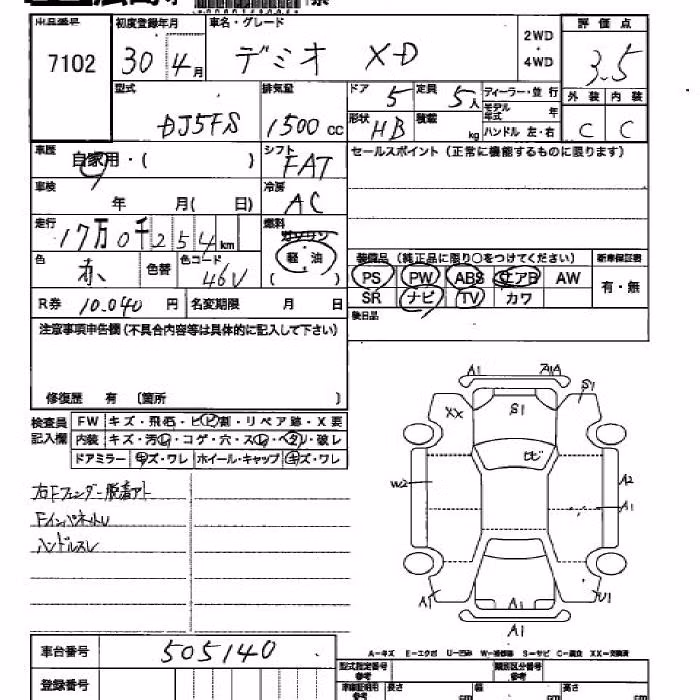 出品番号 初度登録年月 車名・グレード 2WD ・ 4WD 評価点
7102 30 4月 デミオ XD 3.5
型式 排気量 ドア 5 定員 5人 ディーラー・並行 外装 内装
DJ5FS 1500cc 形状 HB 積載 kg モデル年式 年 ハンドル 左・右 C C
車歴 自家用・( ) シフト FAT セールスポイント(正常に機能するものに限ります)
車検 年 月( 日) 冷房 AC
走行 17万0千254km 燃料 ガソリン 軽・油 ( )
色 赤 色替 色コード 46V 装備品(純正品に限り○をつけてください) 新車保証書
PS PW ABS エアB AW 有・無
R券 10.040円 名変期限 月 日 SR ナビ TV カワ
注意事項申告欄(不具合内容等は具体的に記入して下さい) 後日品
修復歴 有 〔箇所 〕
検査員記入欄 FW キズ・飛石・ヒビ割・リペア跡・X要
内装 キズ・汚レ・コゲ・穴・スレ・ヘタリ・破レ
ドアミラー キズ・ワレ ホイール・キャップ キズ・ワレ
右Fフェンダー脱着アト
FインパネキズU
ハンドルスレ
A1 A1A
XX S1 S1
ヒビ
W2 A2
A1
A1 A1 U1
A1
車台番号 505140
A－キズ E－エクボ U－凹ミ W－補修跡 S－サビ C－腐食 XX－交換済
登録番号 型式指定番号 参考 類別区分番号 参考
長さ cm 幅 cm 高さ cm